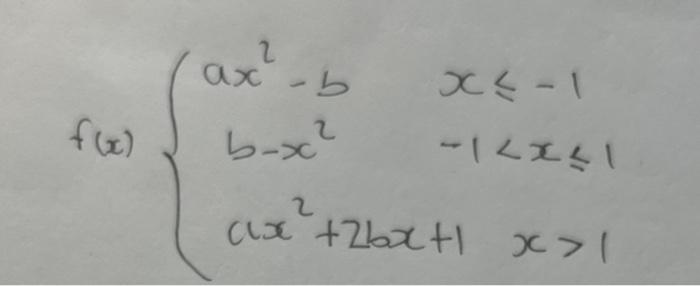 ax² - b x ≤ -1
f(x) { b - x² -1 < x ≤ 1
ax² + 2bx + 1 x > 1